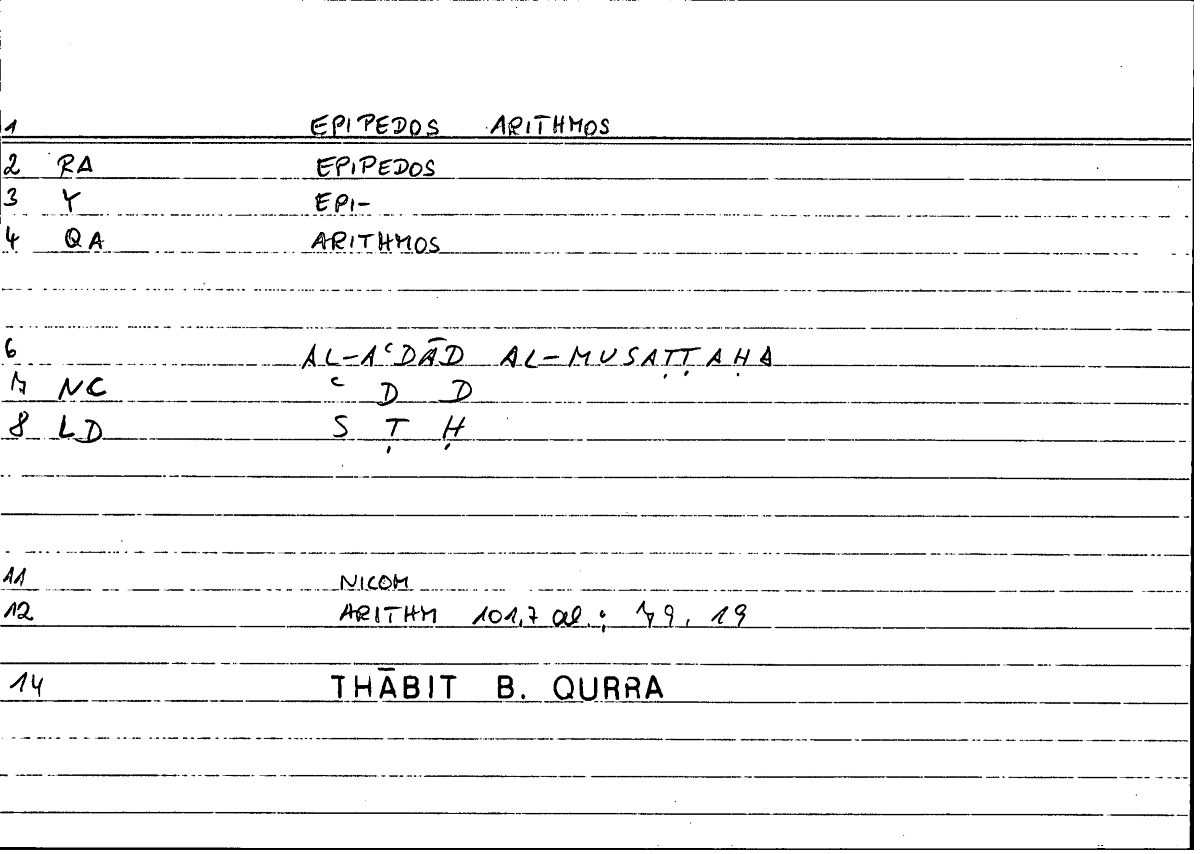 1 EPIPEDOS ARITHMOS
2 RA EPIPEDOS
3 Y EPI-
4 QA ARITHMOS
6 AL-AʿDĀD AL-MUSAṬṬAḤA
7 NC ʿ D D
8 LD S Ṭ Ḥ
11 NICOM
12 ARITHM 101,7 al.; 79, 19
14 THĀBIT B. QURRA